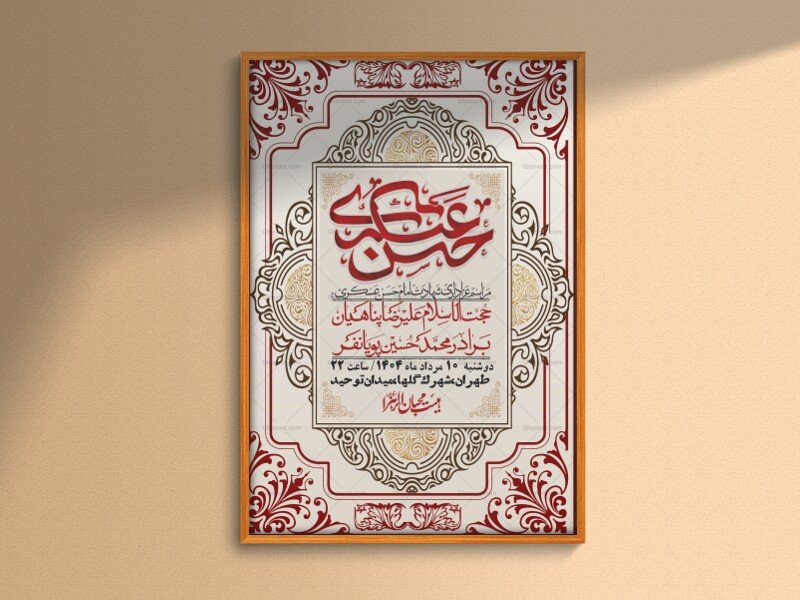 حسن عسکری
مراسم عزاداری شهادت امام حسن عسکری
حجت الاسلام علیرضا پناهیان
برادر محمد حسین پویانفر
دوشنبه ۱۰ مرداد ماه ۱۴۰۴/ ساعت ۲۲
طهران، شهرک گلها، میدان توحید
هیئت محبان الزهرا
Ghonoot.com